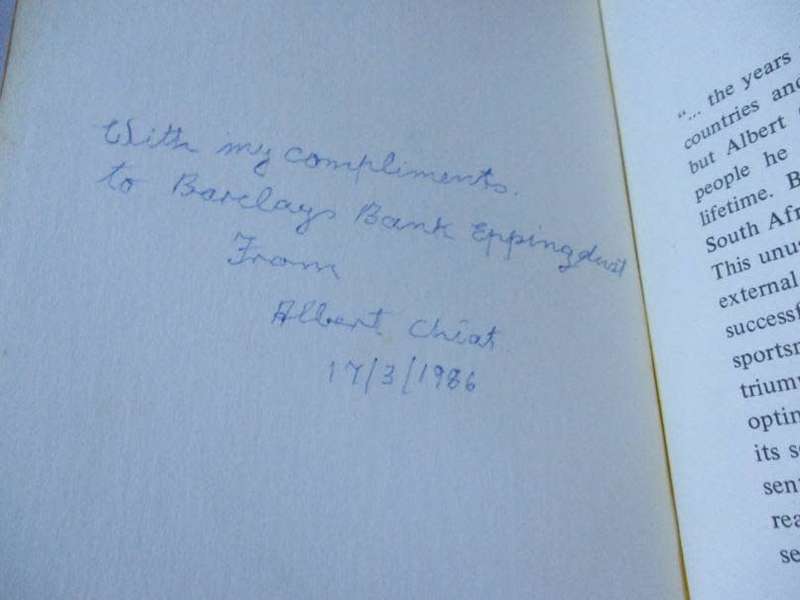 With my compliments.
to Barclays Bank Epping
From
Albert Chiat
17/3/1986
"... the years
countries and
but Albert
people he
lifetime. B
South Afr
This unu
external
successf
sportsm
triump
optim
its s
sen
rea
se